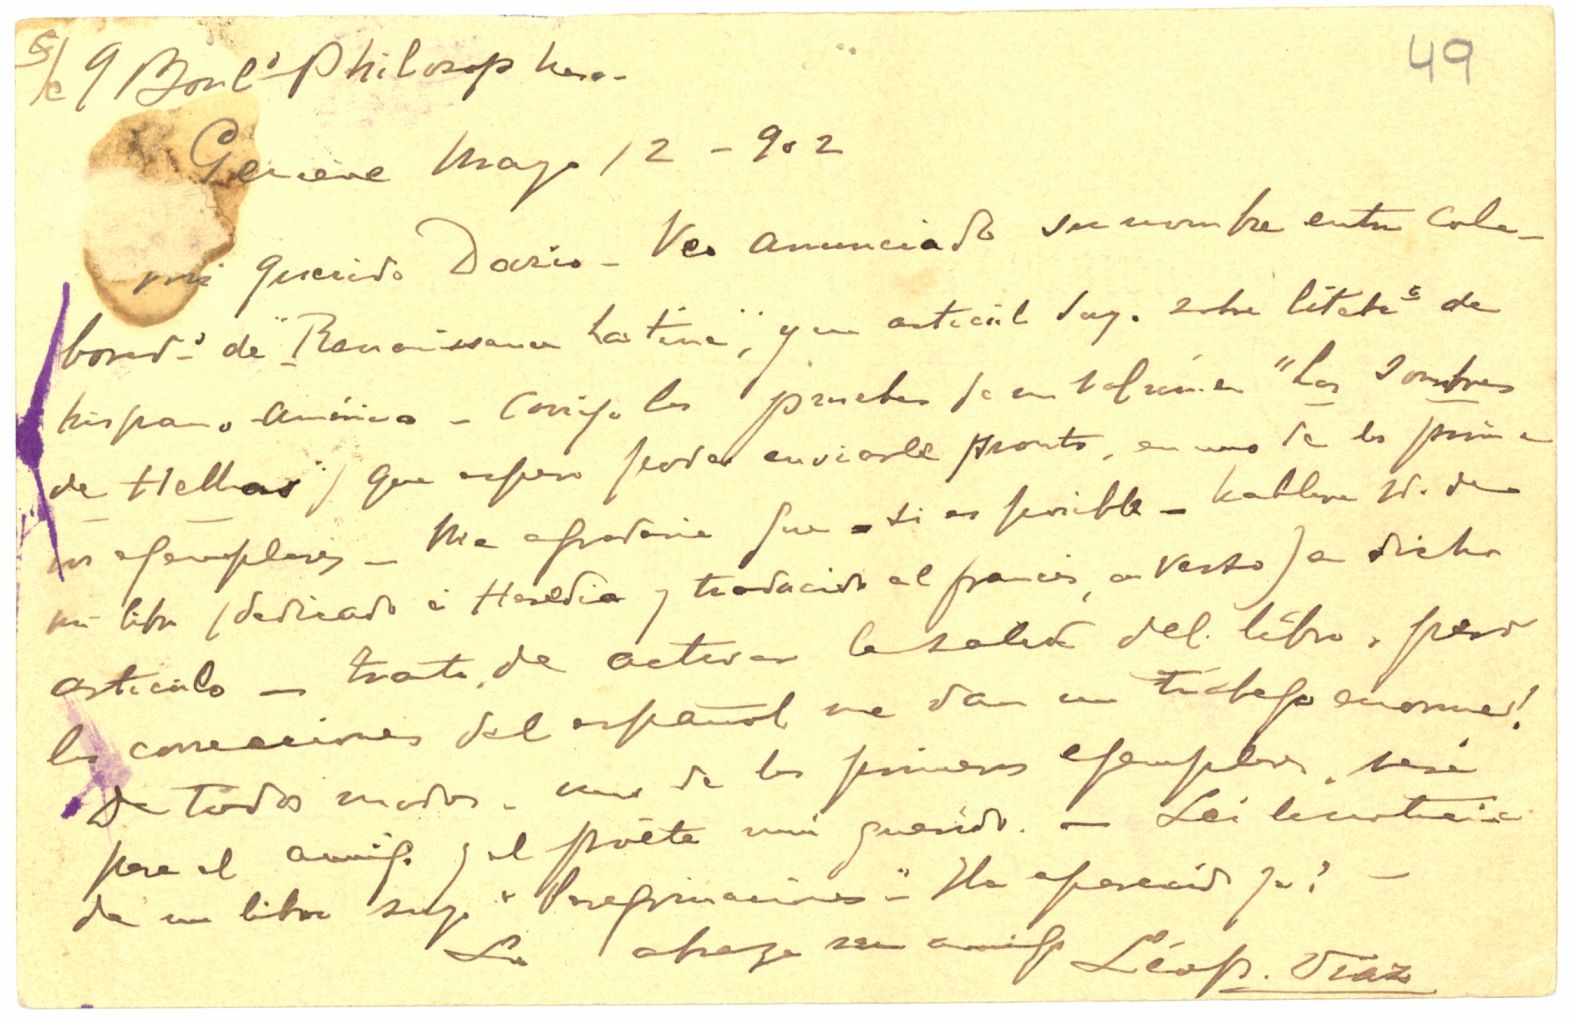 49
S/c 9 Boul.d Philosophes.
Genève Mayo 12 - 902
Mi querido Darío - Veo anunciado su nombre entre cola-
borad.s de "Renaissance Latine", y un articulo suyo sobre litert.a de
hispano-américa - Corrijo las pruebas de mi volúmen "Las Sombras
de Hellas", que espero poder enviarle pronto, en uno de los prime-
ros ejemplares - Me agradaria que - si es posible - hablara Vd. de
mi libro (dedicado á Heredia y traducido al francés, en verso) en dicho
articulo - Trato de activar la salida del libro, pero
las correcciones del español me dan un trabajo enorme!
De todos modos, uno de los primeros ejemplares, será
para el amigo y el poéta mui querido. - Leí la noticia
de un libro suyo "Peregrinaciones" - Ha aparecido ya? -
Le abraza su amigo Léop. Díaz